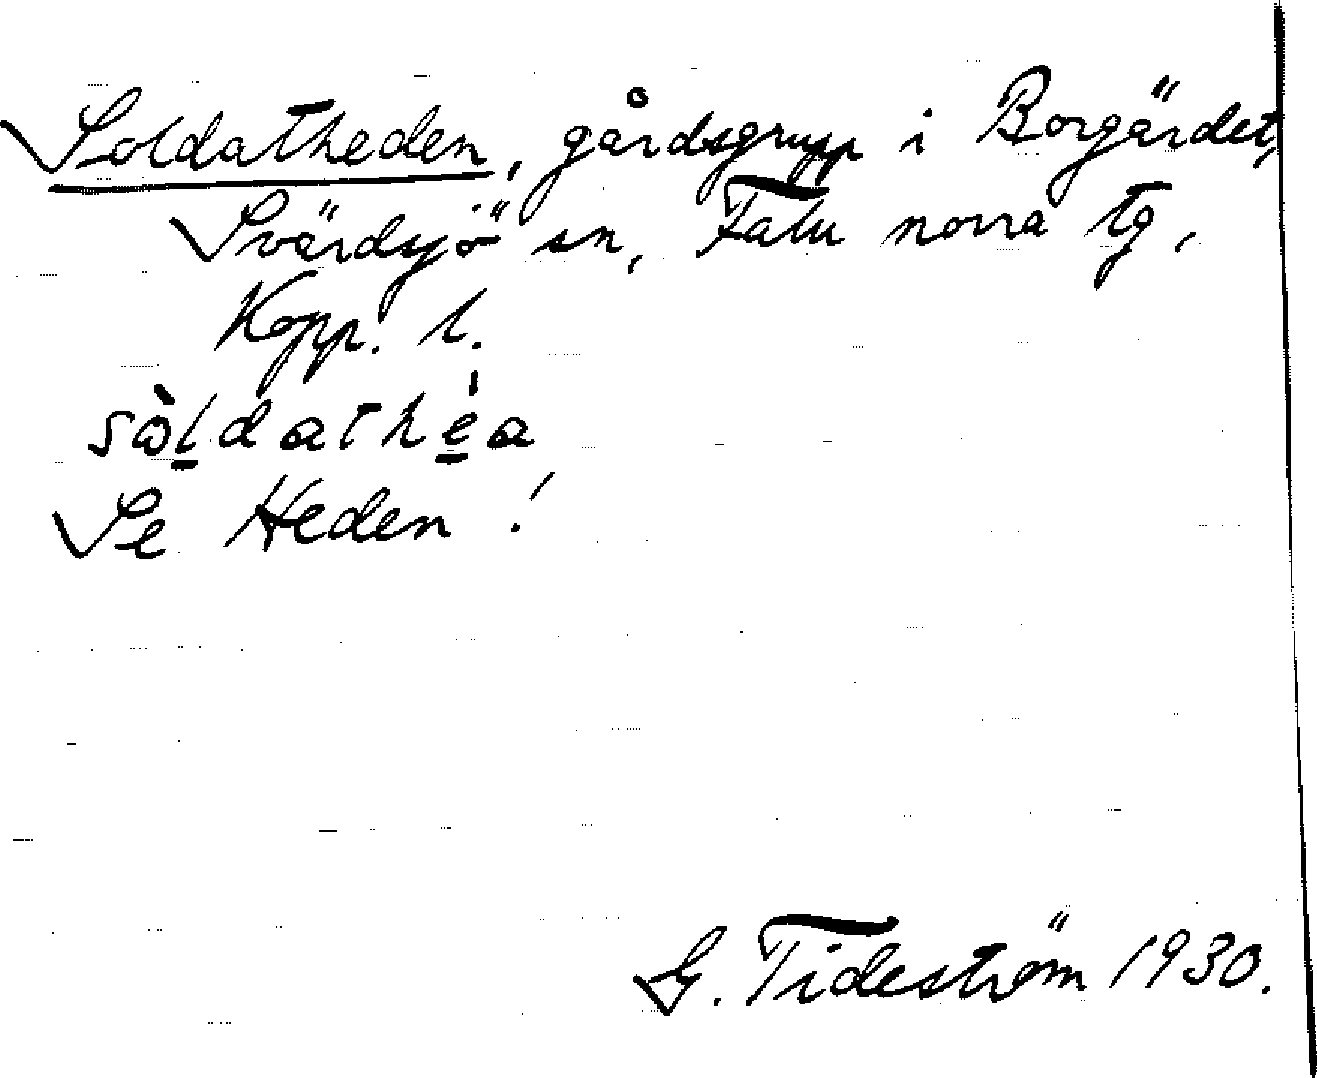 Soldatheden, gårdsgrupp i Borgärdet,
Svärdsjö sn, Falu norra tg,
Kopp. l.
sòldathéa
Se Heden!
G. Tideström 1930.